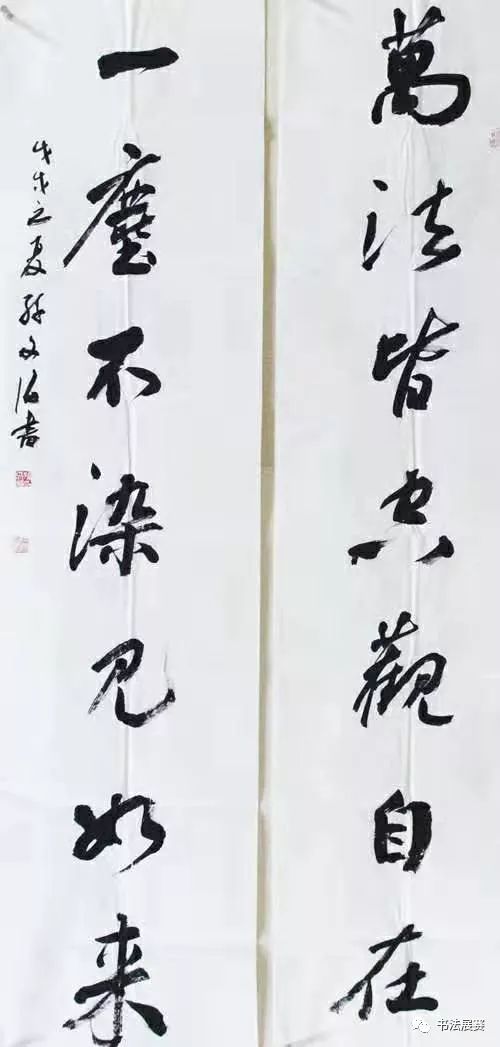 萬法皆空觀自在
一塵不染見如来
戊戌之夏孫文海書
书法展赛